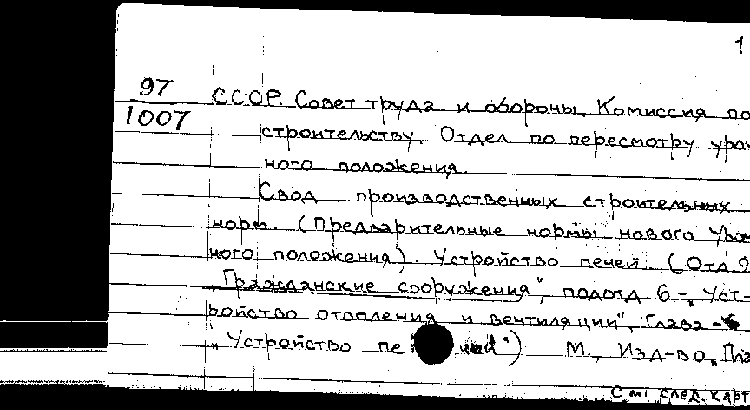 1
97
1007
СССР. Совет труда и обороны. Комиссия по
строительству. Отдел по пересмотру уроч
ного положения.
Свод производственных строительных
норм. (Предварительные нормы нового Уроч
ного положения). Устройство печей. (Отд 9
"Гражданские сооружения", подотд 6 - "Уст-
ройство отопления и вентиляции", Глава -
"Устройство печей") М., Изд-во
См. след. карт